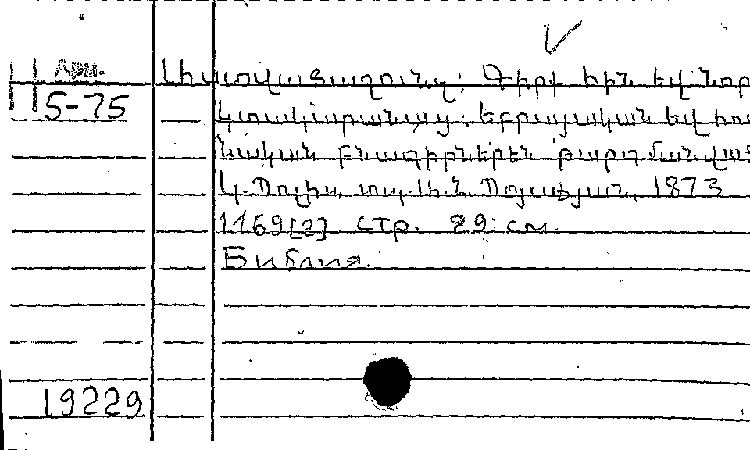 Арм.
5-75
Աստվածաշունչ: Գիրք հին եվ նոր
կտակարանաց. եբրայական եվ հու
նական բնագիրներէն թարգմանված
Կ. Պոլիս, տպ. Պոյաճյան, 1873
1169[2] стр. 29 см.
Библия.
19229